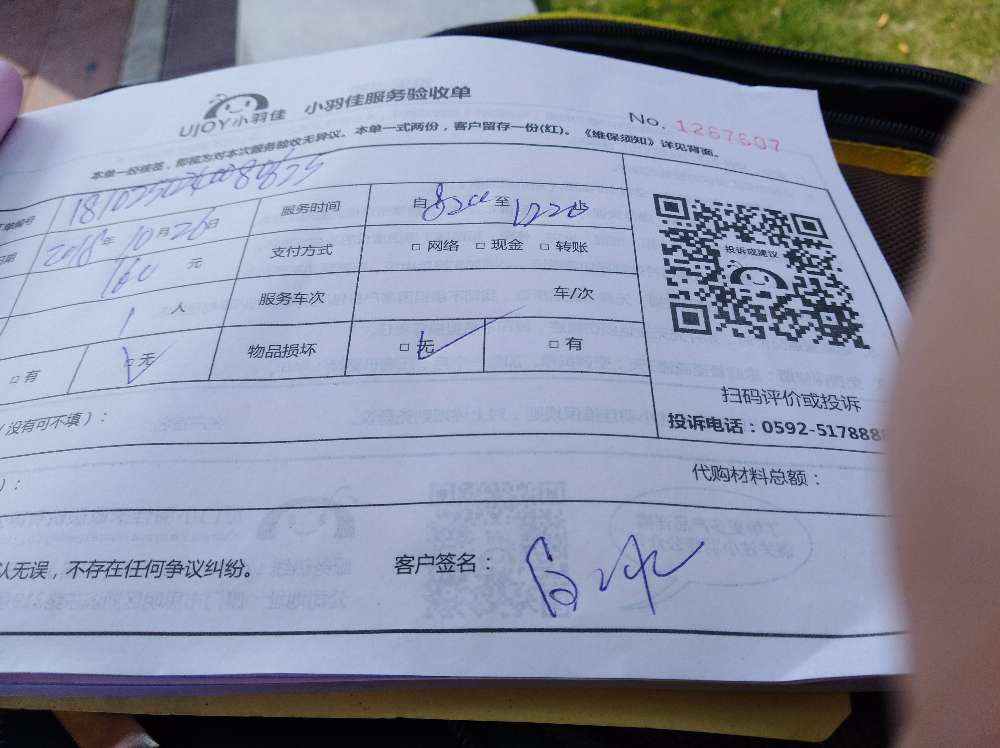 UJOY小羽佳 小羽佳服务验收单
No. 1267607
本单一经核签，即视为对本次服务验收无异议。本单一式两份，客户留存一份(红)。《维保须知》详见背面。
单编号
日期 2018年10月26日 服务时间 自 至
160 元 支付方式 □ 网络 □ 现金 □ 转账
1 人 服务车次 车/次
□ 有 □ 无 物品损坏 □ 无 □ 有
投诉或建议
扫码评价或投诉
投诉电话：0592-5178888
（没有可不填）：
）： 代购材料总额：
认无误，不存在任何争议纠纷。 客户签名：